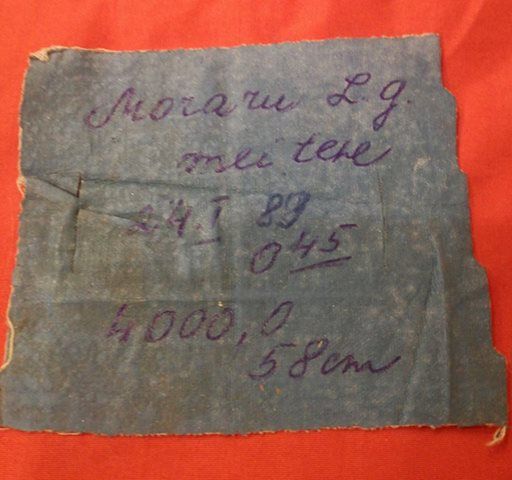 Moraru L. g.
meitene
24.I 89
0 45
4000,0
58cm